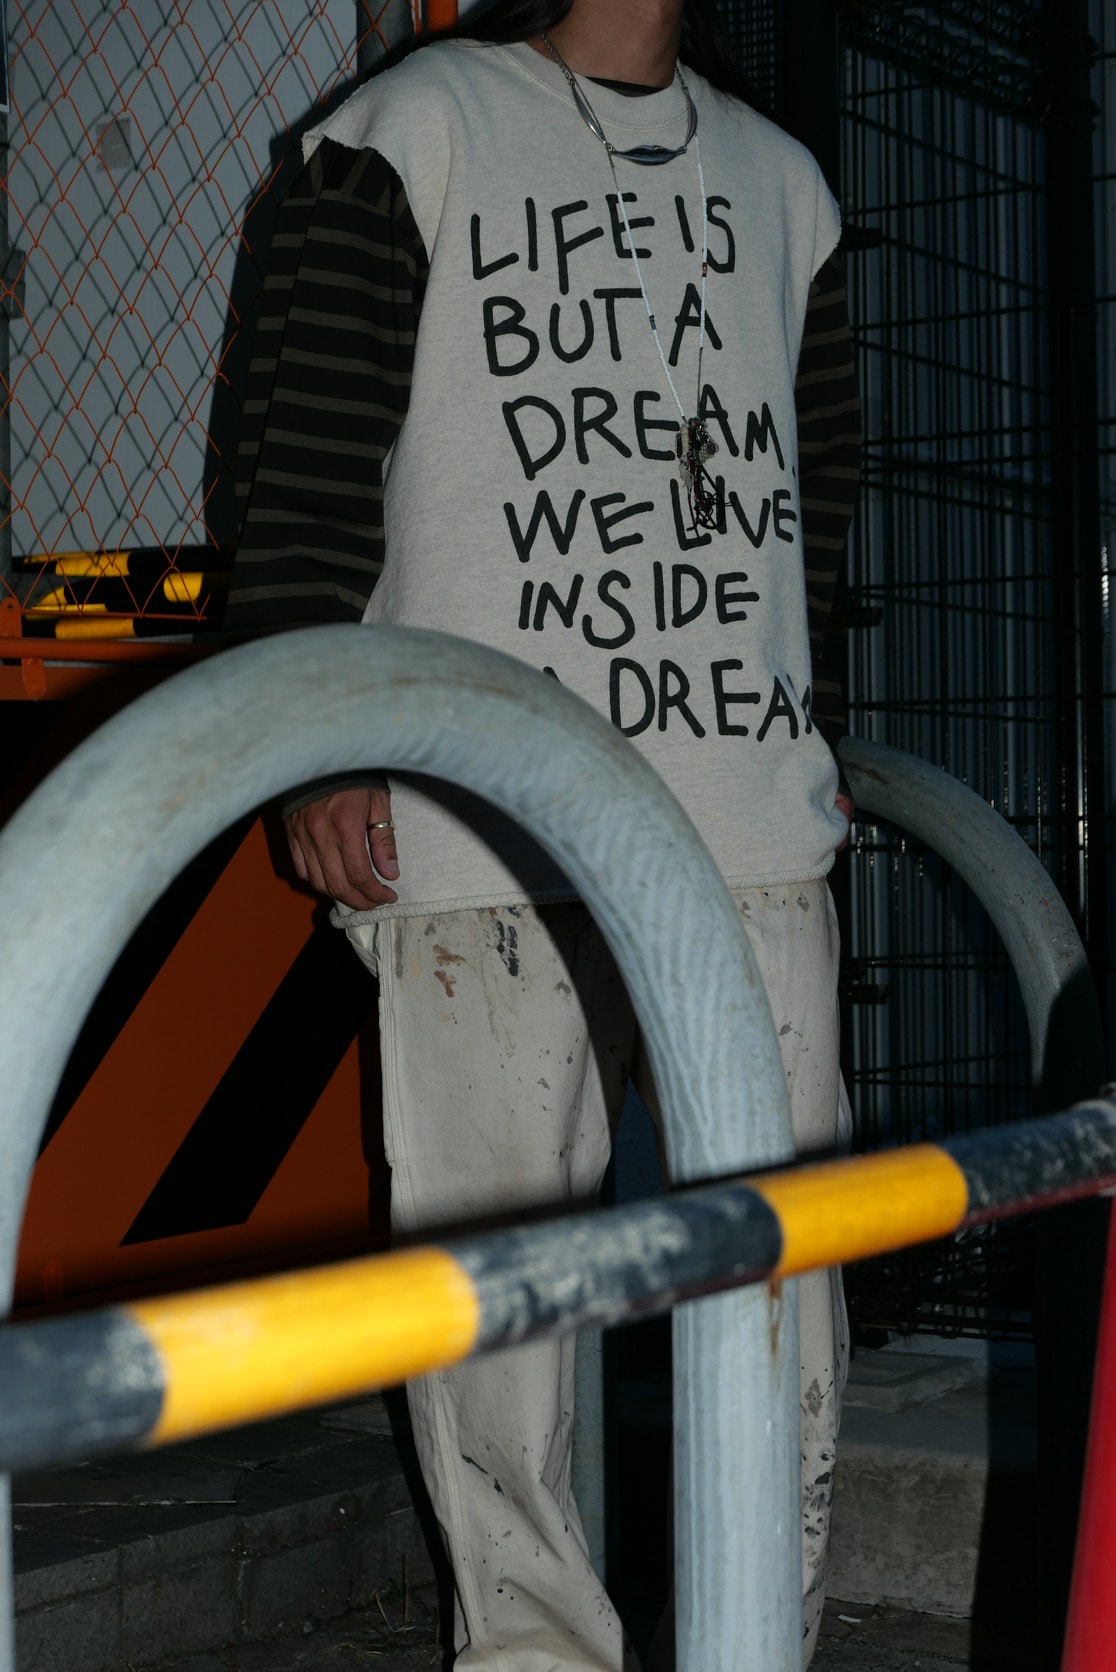 LIFE IS
BUT A
DREAM.
WE LIVE
INSIDE
A DREAM